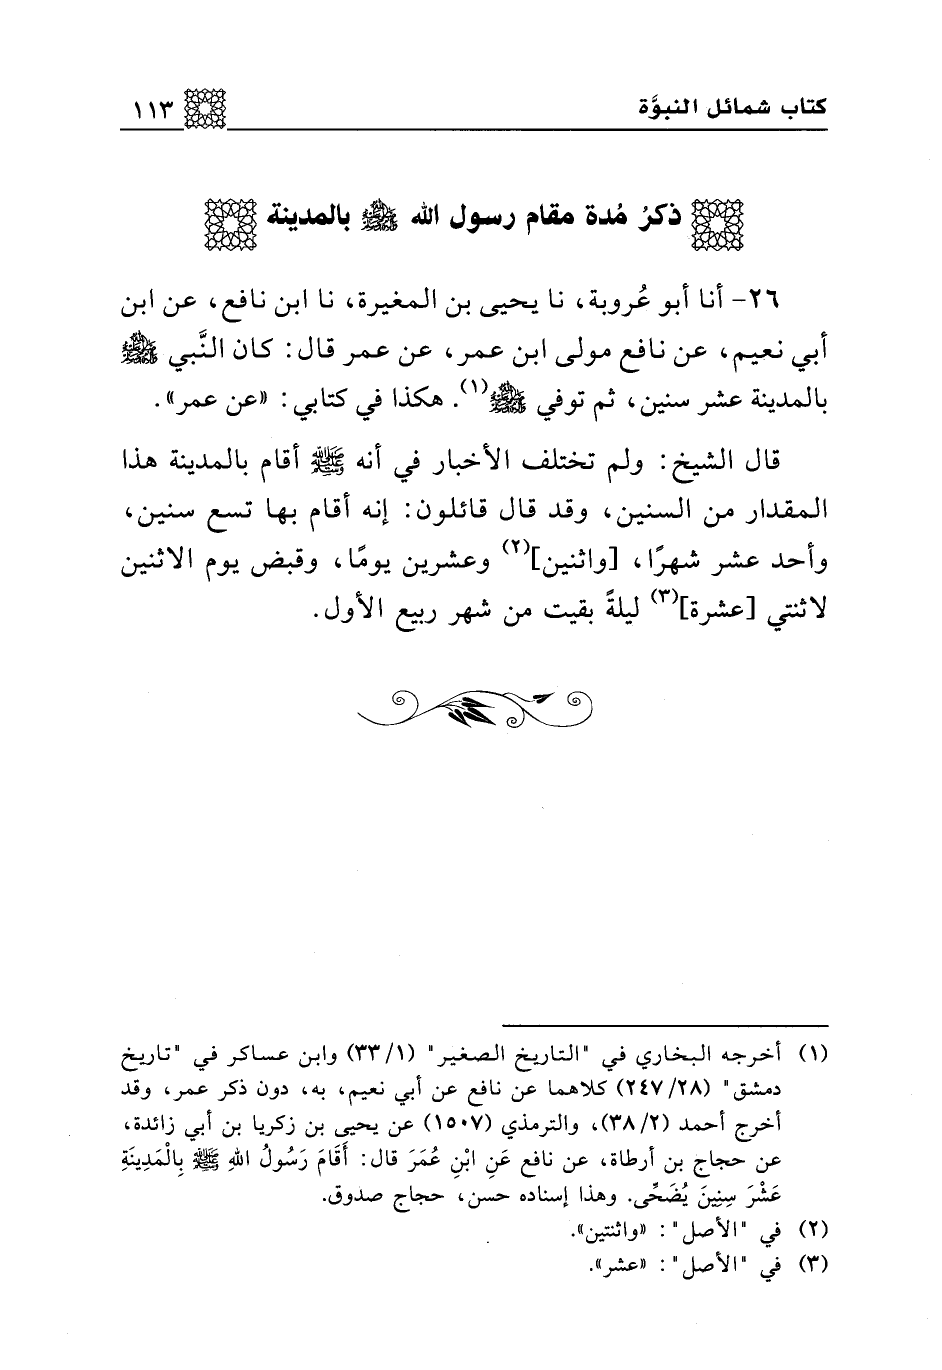 كتاب شمائل النبوَّة ١١٣
ذكرُ مُدة مقام رسول الله ﷺ بالمدينة
٢٦- أنا أبو عُروبة، نا يحيى بن المغيرة، نا ابن نافع، عن ابن
أبي نعيم، عن نافع مولى ابن عمر، عن عمر قال: كان النَّبي ﷺ
بالمدينة عشر سنين، ثم توفي ﷺ(١). هكذا في كتابي: «عن عمر».
قال الشيخ: ولم تختلف الأخبار في أنه ﷺ أقام بالمدينة هذا
المقدار من السنين، وقد قال قائلون: إنه أقام بها تسع سنين،
وأحد عشر شهرًا، [واثنين](٢) وعشرين يومًا، وقبض يوم الاثنين
لاثنتي [عشرة](٣) ليلةً بقيت من شهر ربيع الأول.
(١) أخرجه البخاري في "التاريخ الصغير" (١/ ٣٣) وابن عساكر في "تاريخ
دمشق" (٢٨/ ٢٤٧) كلاهما عن نافع عن أبي نعيم، به، دون ذكر عمر، وقد
أخرج أحمد (٢/ ٣٨)، والترمذي (١٥٠٧) عن يحيى بن زكريا بن أبي زائدة،
عن حجاج بن أرطاة، عن نافع عَنِ ابْنِ عُمَرَ قال: أَقَامَ رَسُولُ اللهِ ﷺ بِالْمَدِينَةِ
عَشْرَ سِنِينَ يُضَحِّى. وهذا إسناده حسن، حجاج صدوق.
(٢) في "الأصل": «واثنتين».
(٣) في "الأصل": «عشر».